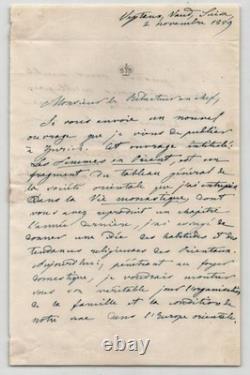 Veytaux, Vaud, Suisse
2 novembre 1859
Monsieur le Rédacteur en chef,
Je vous envoie un nouvel
ouvrage que je viens de publier
à Zurich. Cet ouvrage intitulé
Les femmes en Orient est un
fragment du tableau général de
la société orientale que j'ai entrepris
Dans la Vie monastique dont
vous avez reproduit un chapitre
l'année dernière, j'ai essayé de
donner une idée des habitudes et des
tendances religieuses des Orientaux
Aujourd'hui, pénétrant au foyer
domestique, je voudrais montrer
sous son véritable jour l'organisation
de la famille et la condition de
notre sexe dans l'Europe orientale.